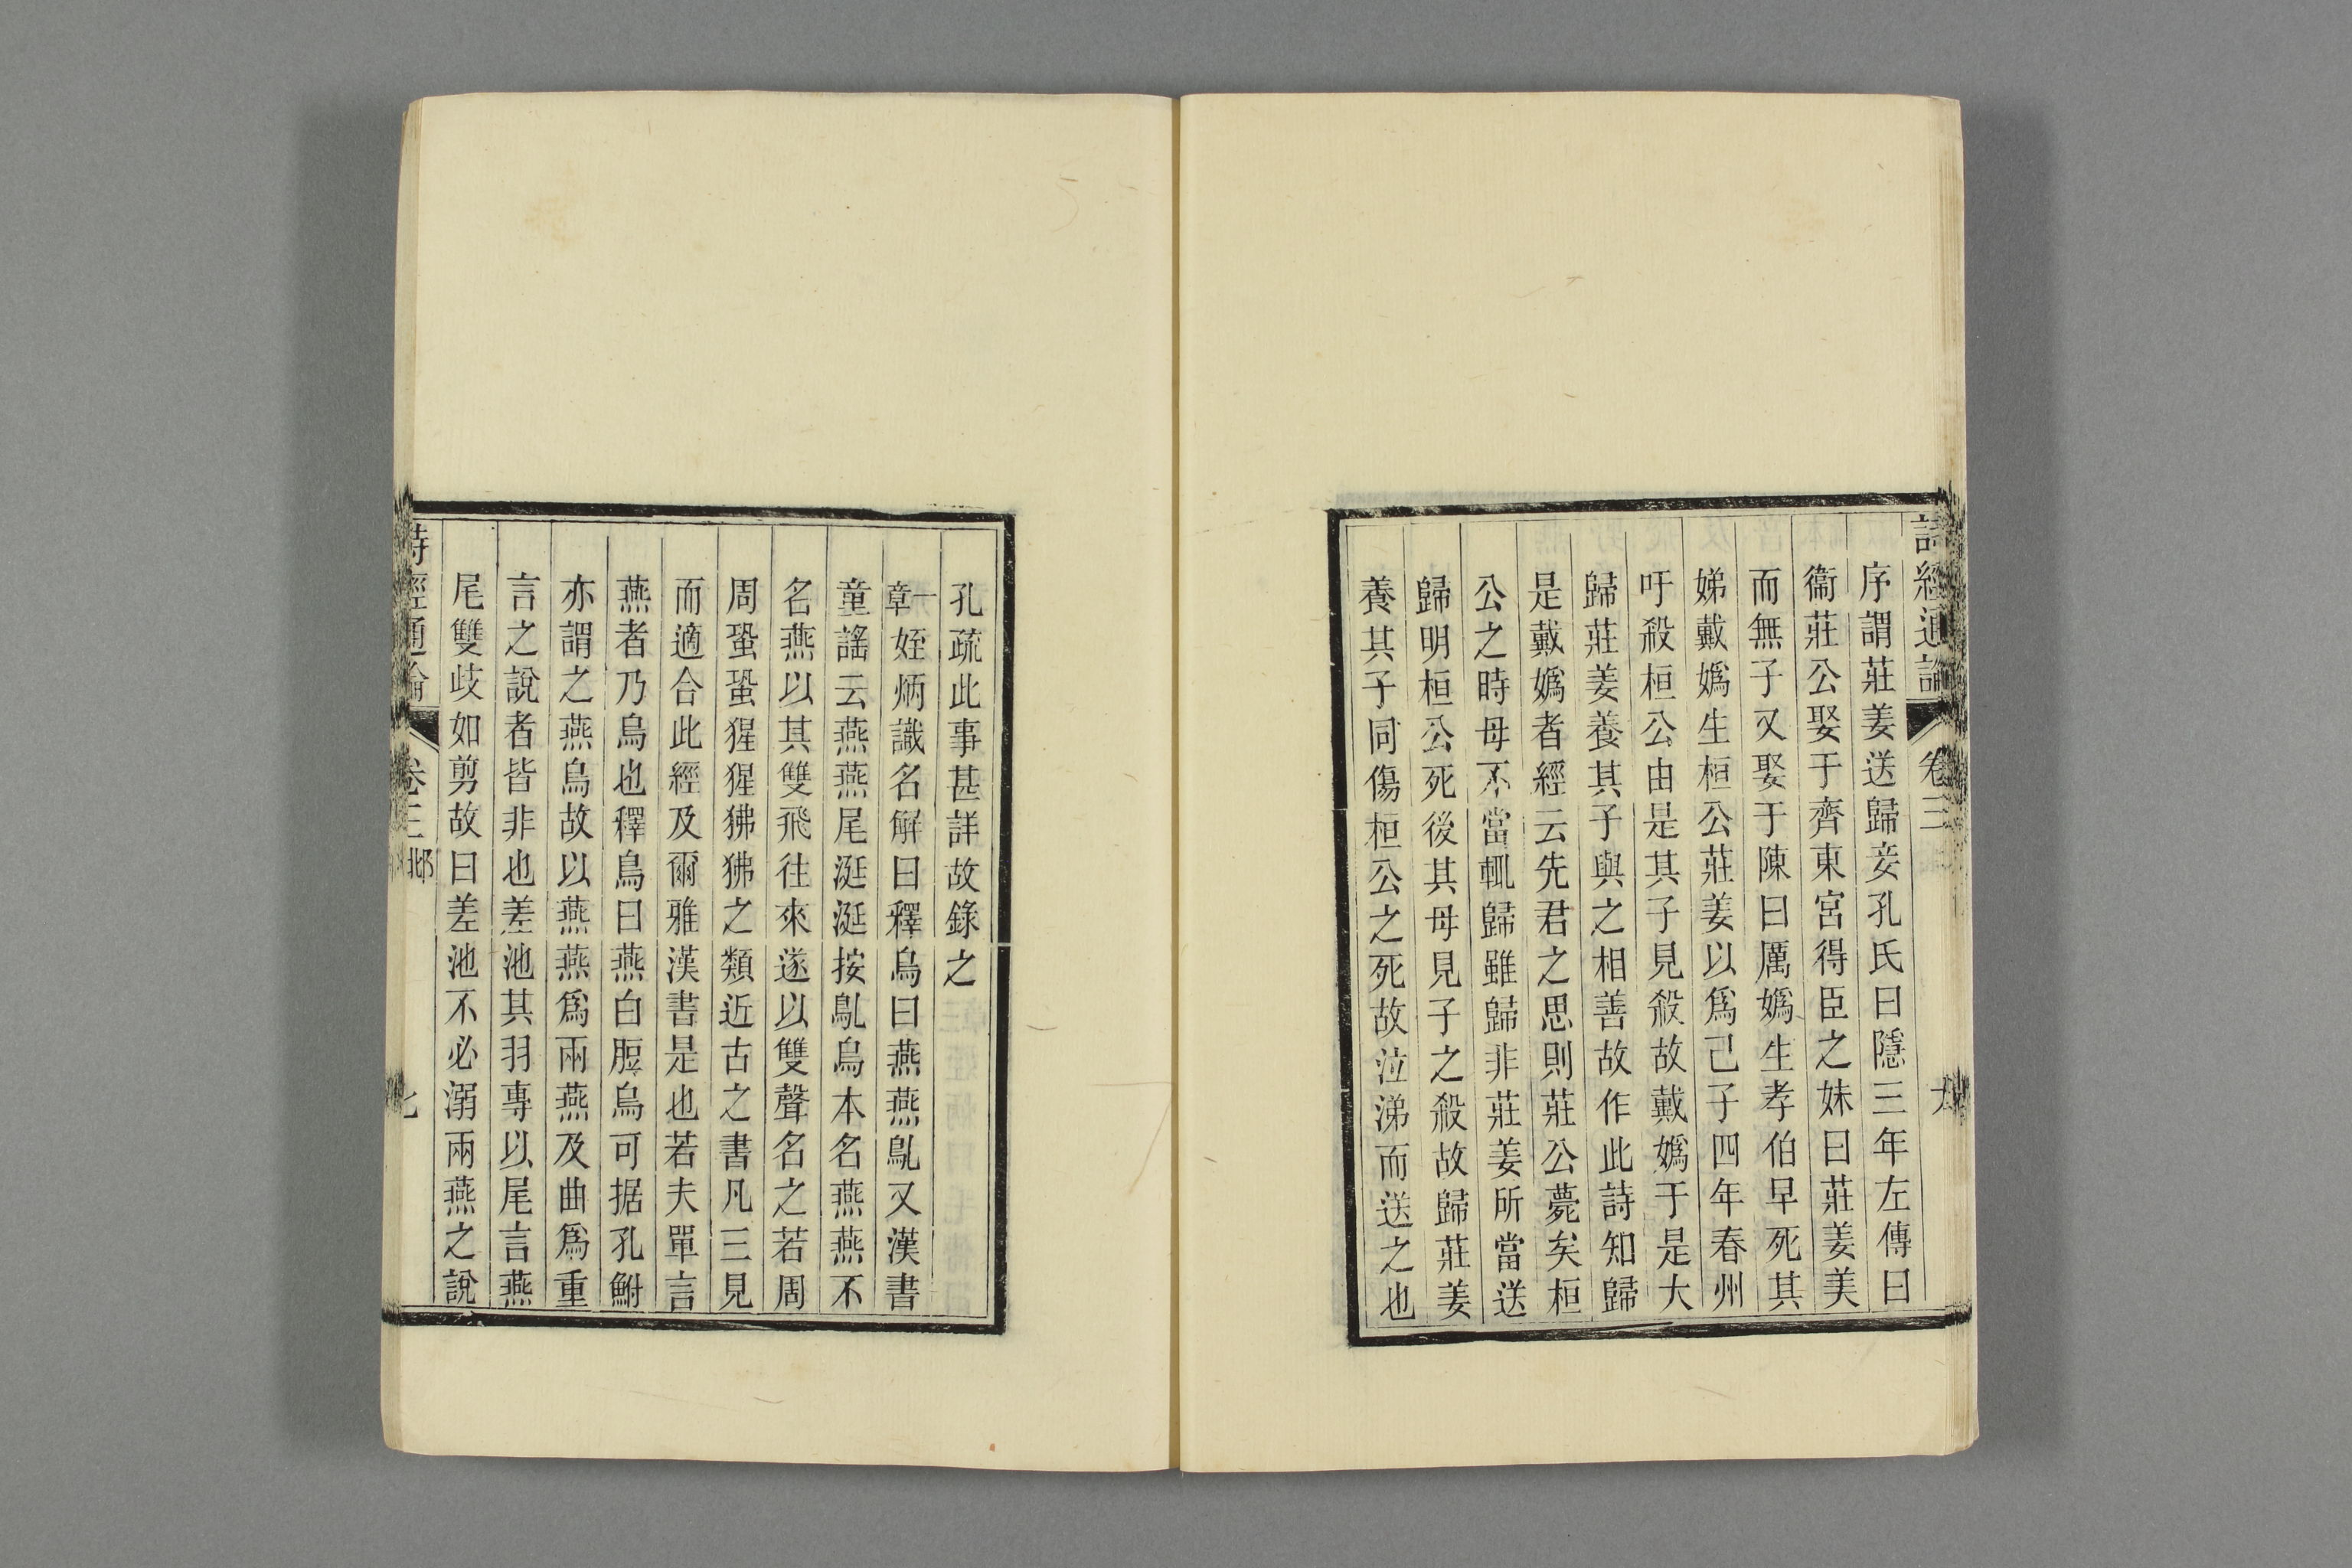 詩經通論 卷三
序謂莊姜送歸妾孔氏曰隱三年左傳曰
衞莊公娶于齊東宮得臣之妹曰莊姜美
而無子又娶于陳曰厲嬀生孝伯早死其
娣戴嬀生桓公莊姜以爲己子四年春州
吁殺桓公由是其子見殺故戴嬀于是大
歸莊姜養其子與之相善故作此詩知歸
是戴嬀者經云先君之思則莊公薨矣桓
公之時母不當輒歸雖歸非莊姜所當送
歸明桓公死後其母見子之殺故歸莊姜
養其子同傷桓公之死故泣涕而送之也
孔疏此事甚詳故錄之
一章姪炳識名解曰釋鳥曰燕燕鳦又漢書
童謠云燕燕尾涎涎按鳦鳥本名燕燕不
名燕以其雙飛往來遂以雙聲名之若周
周蛩蛩猩猩狒狒之類近古之書凡三見
而適合此經及爾雅漢書是也若夫單言
燕者乃烏也釋鳥曰燕白脰烏可据孔鮒
亦謂之燕烏故以燕燕爲兩燕及曲爲重
言之說者皆非也差池其羽專以尾言燕
尾雙歧如剪故曰差池不必溺兩燕之說
詩經通論 卷三 邶 七